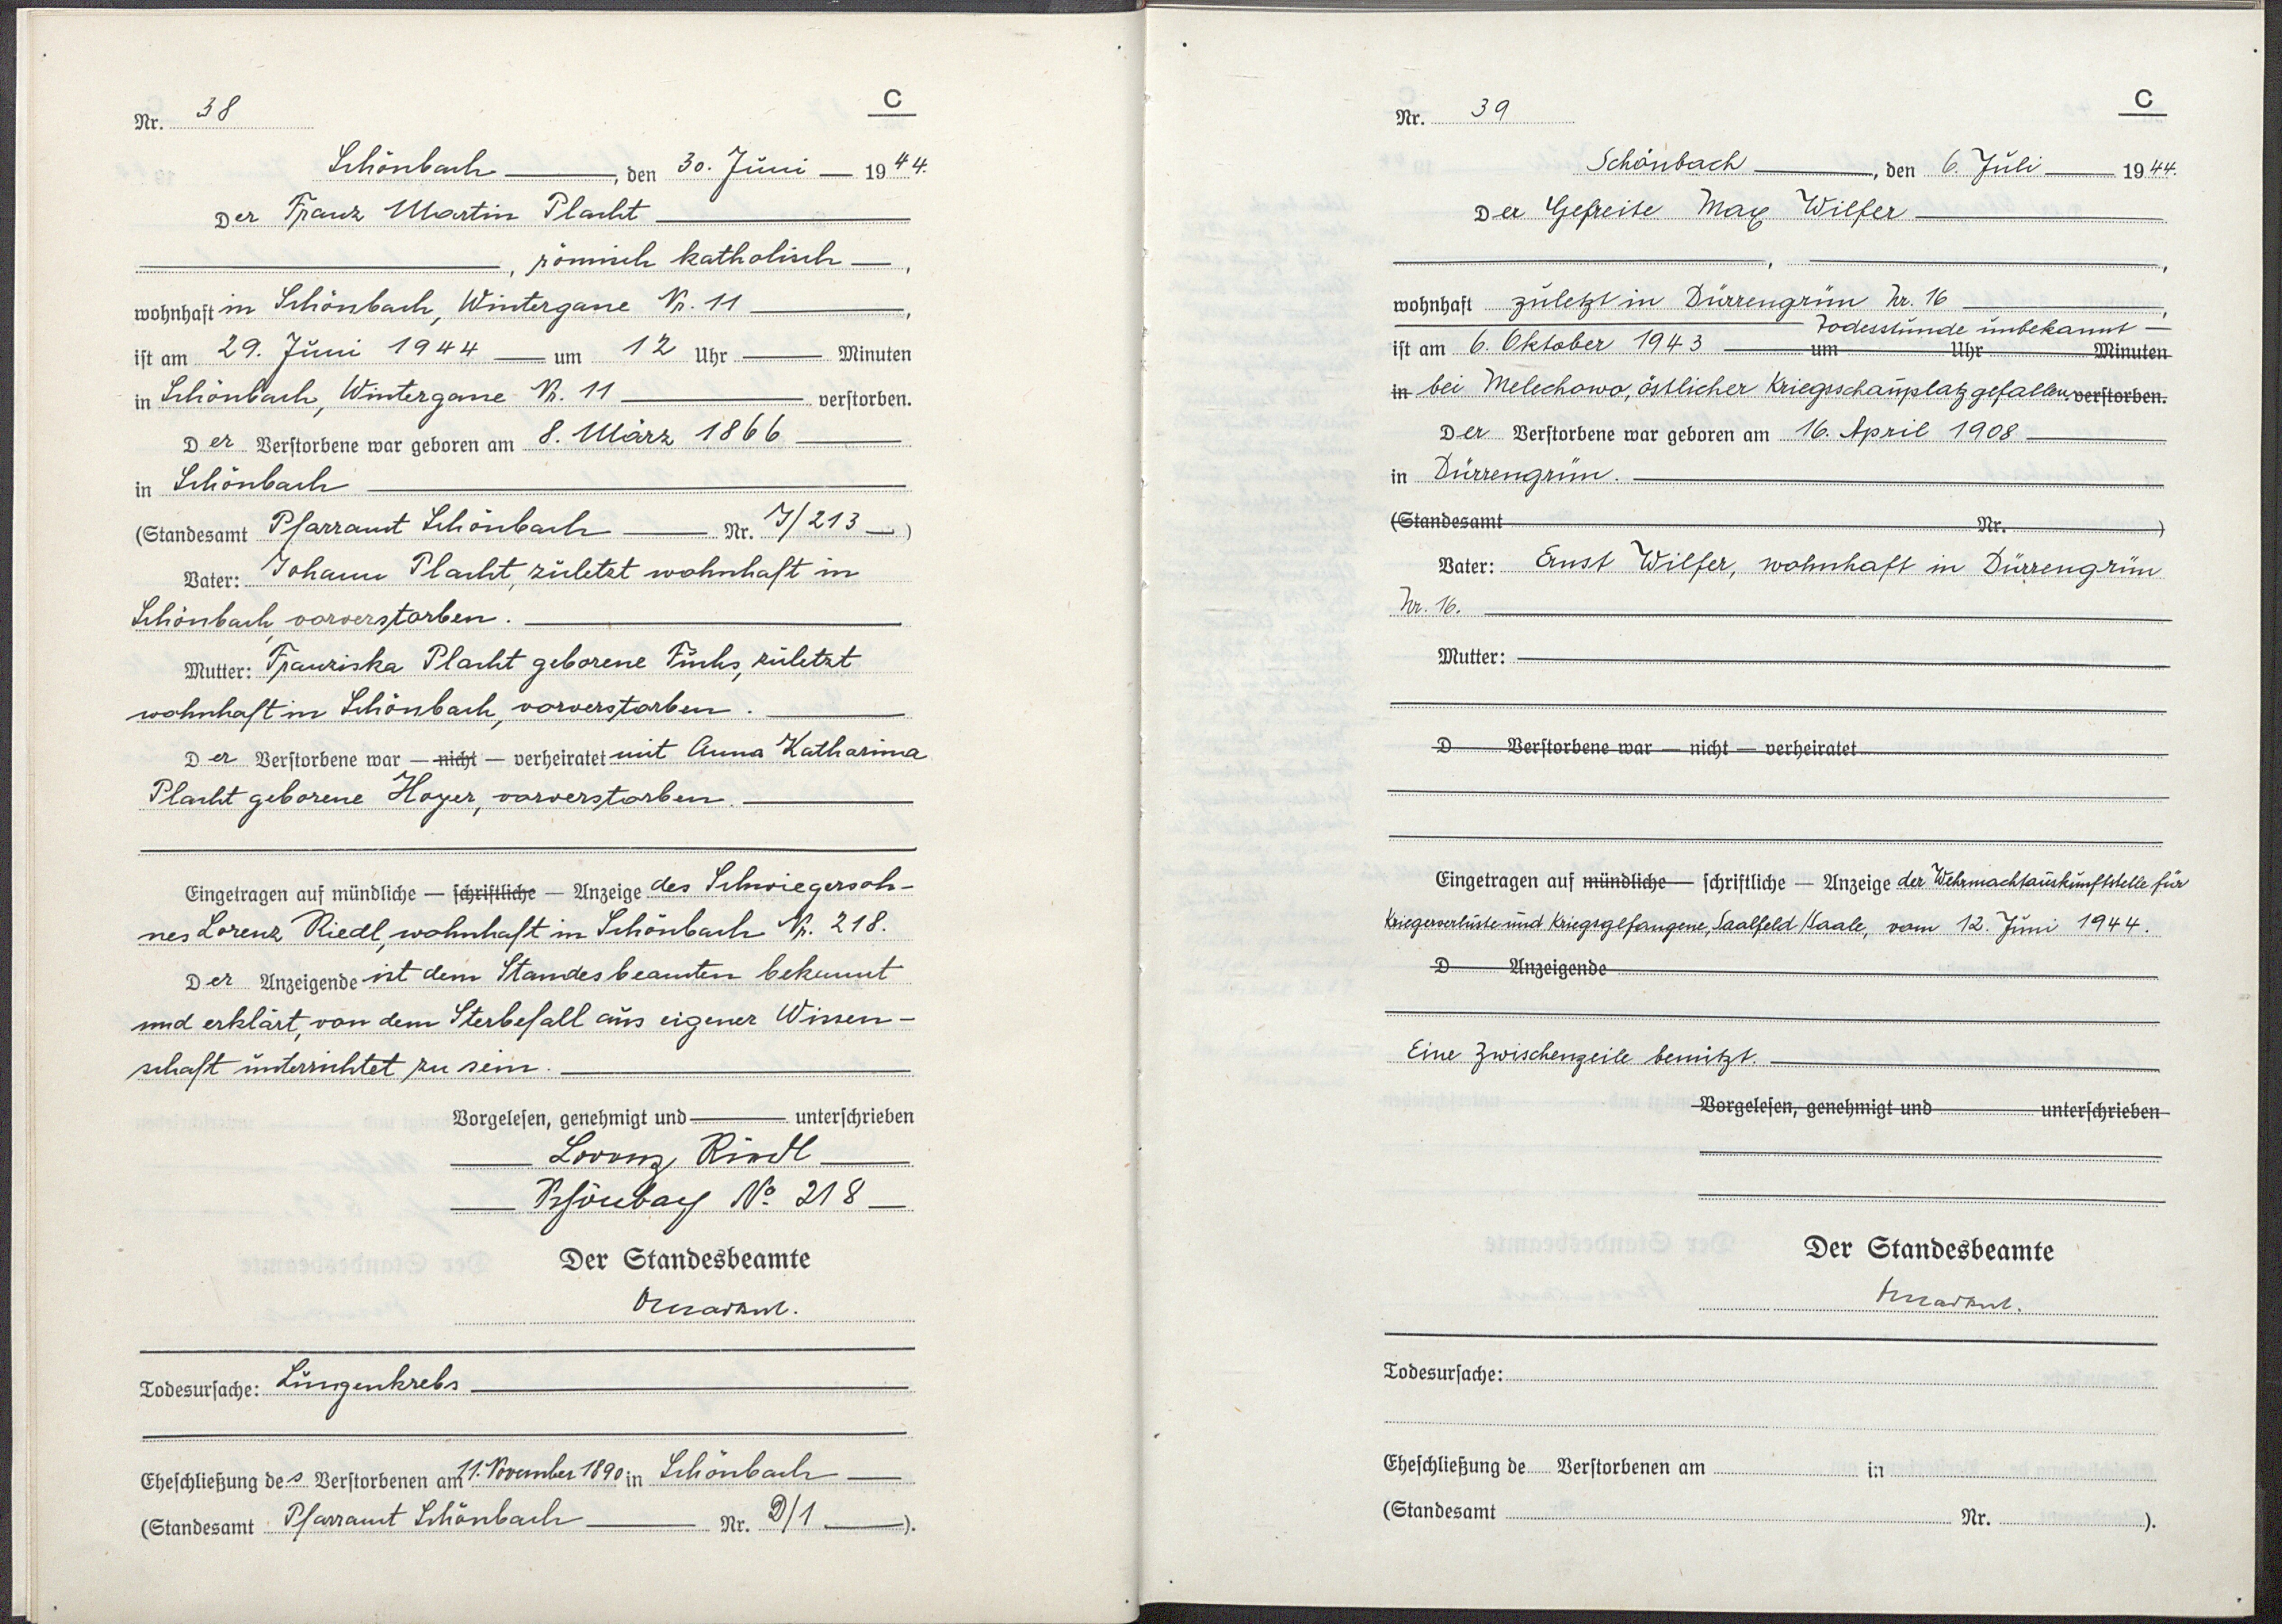 Nr. 38
C
Schönbach, den 30. Juni 1944.
Der Franz Martin Placht
, römisch katholisch,
wohnhaft in Schönbach, Wintergasse Nr. 11,
ist am 29. Juni 1944 um 12 Uhr Minuten
in Schönbach, Wintergasse Nr. 11 verstorben.
Der Verstorbene war geboren am 8. März 1866
in Schönbach
(Standesamt Pfarramt Schönbach Nr. I/213)
Vater: Johann Placht, zuletzt wohnhaft in
Schönbach, vorverstorben.
Mutter: Franziska Placht geborene Fuchs, zuletzt
wohnhaft in Schönbach, vorverstorben.
Der Verstorbene war — nicht — verheiratet mit Anna Katharina
Placht geborene Hoyer, vorverstorben.
Eingetragen auf mündliche — schriftliche — Anzeige des Schwiegersoh-
nes Lorenz Riedl, wohnhaft in Schönbach Nr. 218.
Der Anzeigende ist dem Standesbeamten bekannt
und erklärt, von dem Sterbefall aus eigener Wissen-
schaft unterrichtet zu sein.
Vorgelesen, genehmigt und unterschrieben
Lorenz Riedl
Schönbach No. 218
Der Standesbeamte
Todesursache: Lungenkrebs
Eheschließung des Verstorbenen am 11. November 1890 in Schönbach
(Standesamt Pfarramt Schönbach Nr. D/1).
Nr. 39
C
Schönbach, den 6. Juli 1944.
Der Gefreite Max Wilfer
, ,
wohnhaft zuletzt in Dürrengrün Nr. 16,
Todesstunde unbekannt
ist am 6. Oktober 1943 um Uhr Minuten
in bei Melechowo, östlicher Kriegsschauplatz gefallen. verstorben.
Der Verstorbene war geboren am 16. April 1908
in Dürrengrün.
(Standesamt Nr. )
Vater: Ernst Wilfer, wohnhaft in Dürrengrün
Nr. 16.
Mutter:
D Verstorbene war — nicht — verheiratet
Eingetragen auf mündliche — schriftliche — Anzeige der Wehrmachtauskunftstelle für
Kriegerverluste und Kriegsgefangene, Saalfeld/Saale, vom 12. Juni 1944.
D Anzeigende
Eine Zwischenzeile benützt.
Vorgelesen, genehmigt und unterschrieben
Der Standesbeamte
Todesursache:
Eheschließung de Verstorbenen am in
(Standesamt Nr. ).